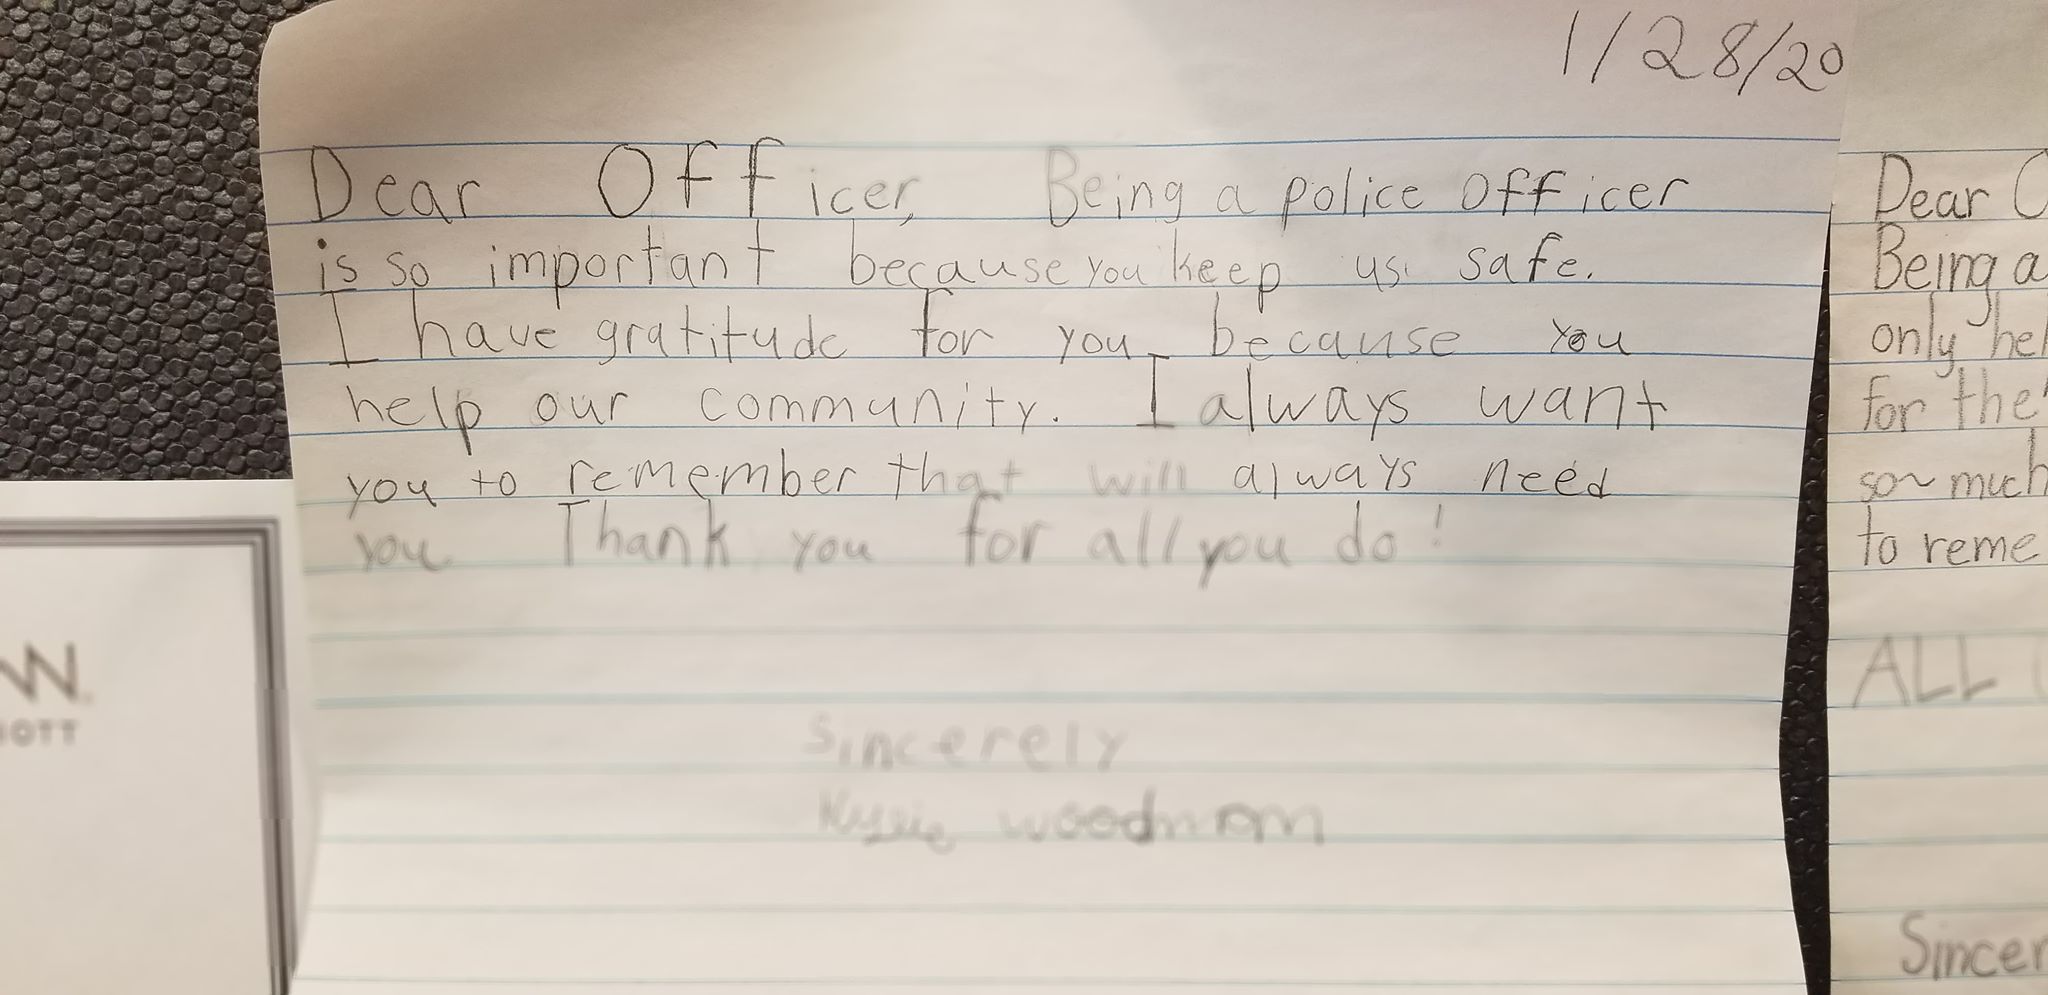 1/28/20
Dear Officer, Being a police officer
is so important because you keep us safe.
I have gratitude for you because you
help our community. I always want
you to remember that will always need
you Thank you for all you do!
Sincerely
Dear
Being a
only
for the
so much
to
ALL